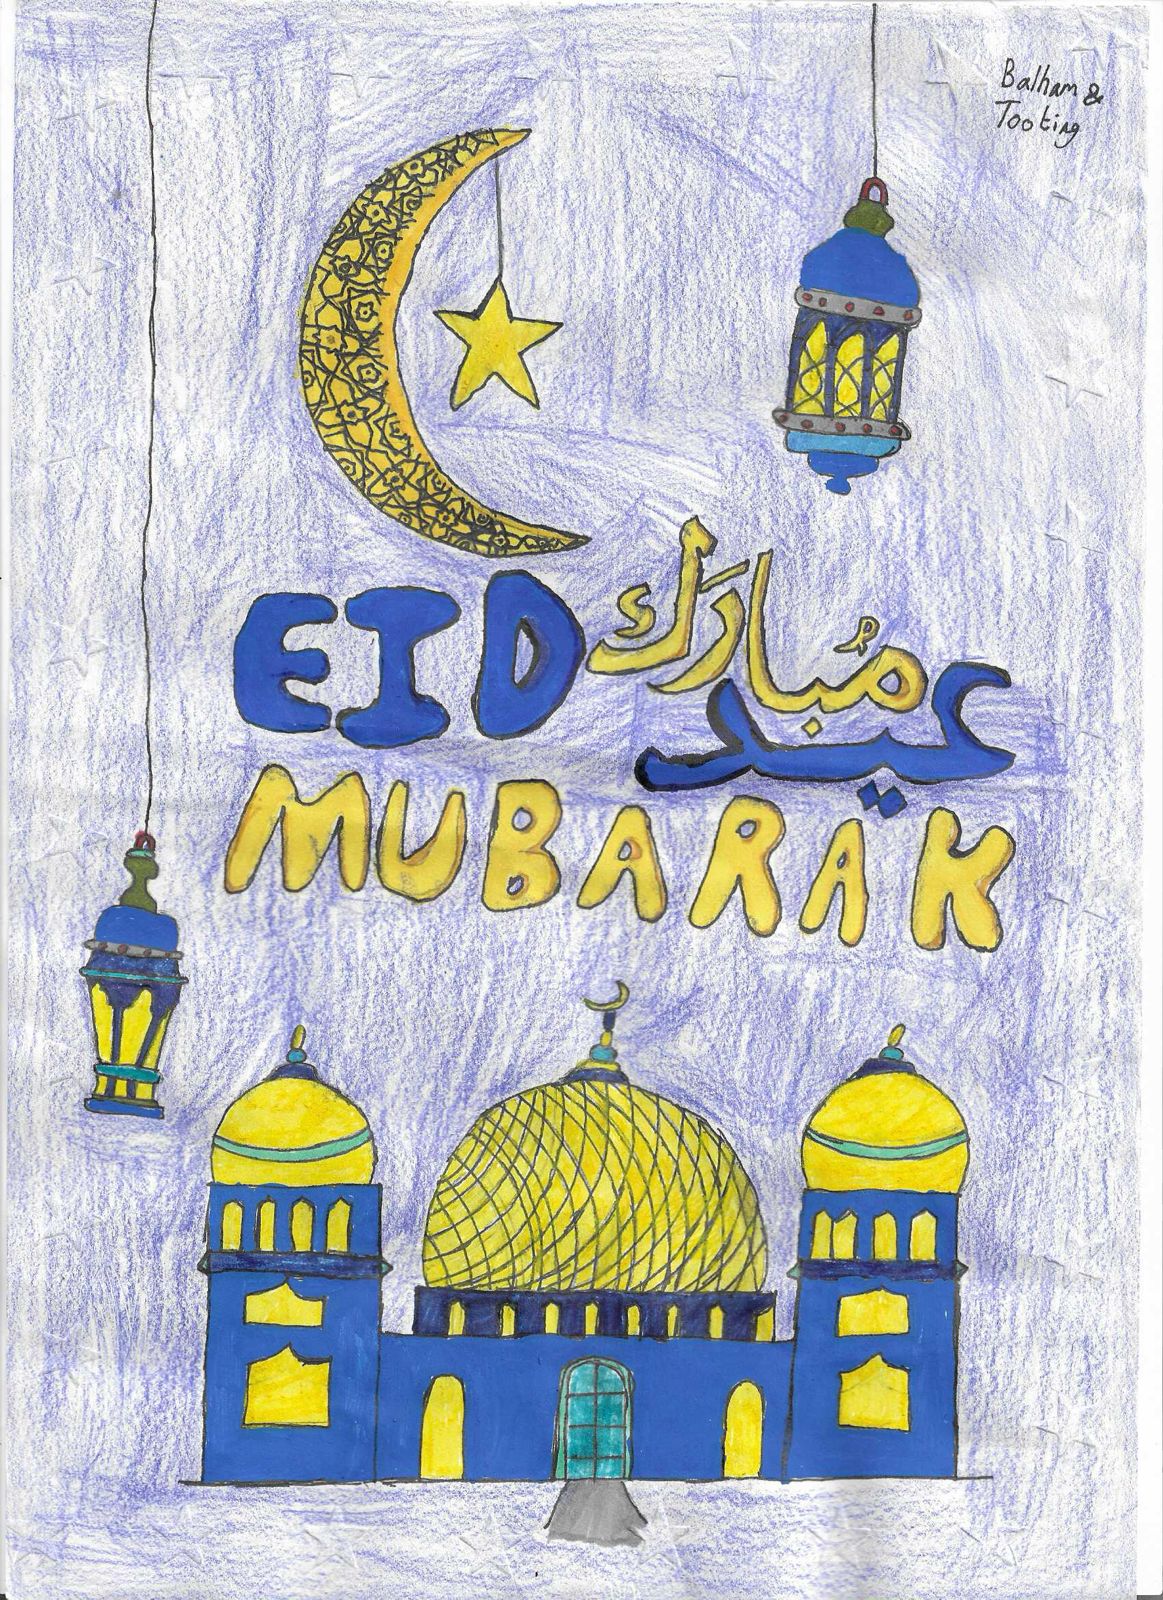 Balham &
Tooting
EID
مُبارَك
عيد
MUBARAK